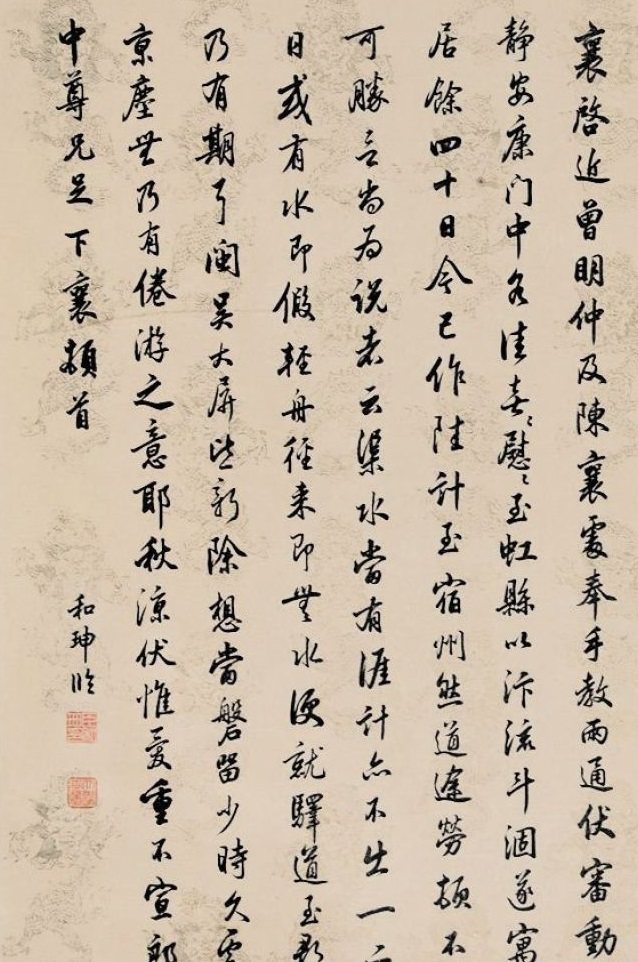 襄啓近曾明仲及陳襄處奉手教兩通伏審動
静安康门中各佳喜〻慰〻至虹縣以汴流斗涸遂寓
居餘四十日今已作陸計至宿州然道途勞頓不
可勝言尚為説者云渠水當有涯計亦不出一二
日或有水即假輕舟徑来即無水便就驛道至
乃有期耳閩吳大屏皆新除想當磐留少時久
京塵無乃有倦游之意耶秋涼伏惟愛重不宣郎
中尊兄足下襄頓首
和珅臨